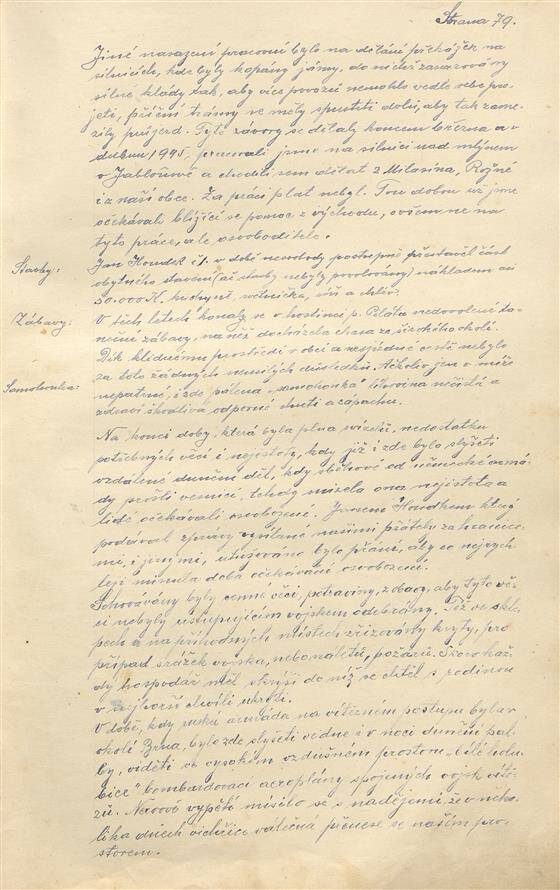 Strana 79.
Jiné nasazení pracovní bylo na dělání překážek na
silnicích, kde byly kopány jámy, do nichž zasazovány
silné klády tak, aby více povozů nemohlo vedle sebe pro-
jeti, příční trámy se měly spustiti dolů, aby tak zame-
zily průjezd. Tyto závory se dělaly koncem března a v
dubnu 1945, pracovali jsme na silnici nad mlýnem
v Jabloňově a chodili sem dělat z Milasína, Rožné
i z naší obce. Za práci plat nebyl. Tou dobou už jsme
očekávali blížící se pomoc z východu, ovšem ne na
tyto práce, ale osvoboditele.
Stavby: Jan Houdek č. v době nesvobody postupně přestavěl část
obytného stavení (ač stavby nebyly povolovány) nákladem asi
50.000 K. kuchyně, světnička, síň a chlév.
Zábavy: V těch letech konaly se v hostinci p. Peláta nedovolené ta-
neční zábavy, na něž docházela chasa ze širokého okolí.
Dík klidnému prostředí v obci a nesjízdné cestě nebylo
za toto žádných nemilých důsledků. Ačkoliv jen v míře
Samohonka: nepatrné, i zde pálena "samohonka" tekutina nečistá a
zdraví škodlivá odporné chuti a zápachu.
Na konci doby, která byla plna svízelů, nedostatku
potřebných věcí i nejistoty, kdy již i zde bylo slyšeti
vzdálené dunění děl, kdy sběhové od německé armá-
dy prošli vesnicí, tehdy mizela ona nejistota a
lidé očekávali osvobození. Janem Houdkem který
podával zprávy vysílané našimi přáteli za hranice-
mi, i jinými, utvrzováno bylo přání, aby co nejrych-
leji minula doba očekávané osvobození.
Schovávány byly cenné věci, potraviny, z obavy, aby tyto vě-
ci nebyly ustupujícím vojskem odebrány. Též ve skle-
pech a na příhodných místech zřizovány kryty, pro
případ srážek vojska, nebo náletů, požárů. Skoro kaž-
dý hospodář měl skrýši do níž se chtěl s rodinou
v nejhorší chvíli ukrýti.
V době, kdy ruská armáda na vítězném postupu byla v
okolí Brna, bylo zde slyšeti ve dne i v noci dunění pal-
by, viděti ve vysokém vzdušném prostoru "bílé holu-
bice" bombardovací aeroplány spojených vojsk vítě-
zů. Nervové vypětí mísilo se s nadějemi, že v něko-
lika dnech vichřice válečná přenese se naším pro-
storem.